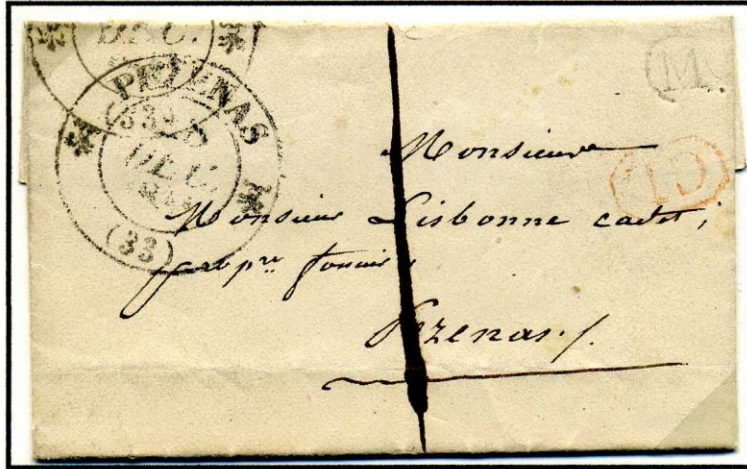 DEC.
PEZENAS
DEC.
(33)
M
ID
Monsieur
Monsieur Lisbonne cadet,
Pezenas./.